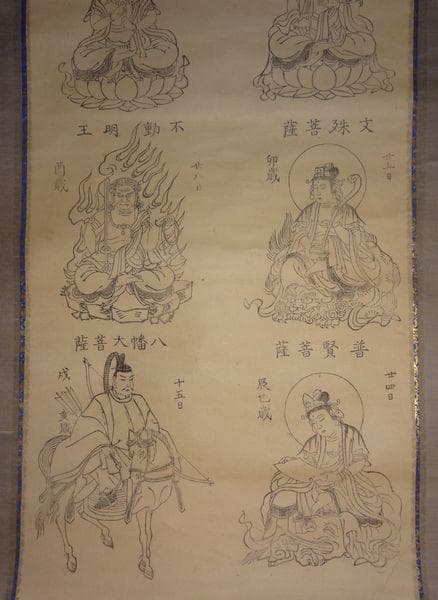 文殊菩薩
廿五日
卯歳
不動明王
廿八日
酉歳
普賢菩薩
廿四日
辰巳歳
八幡大菩薩
十五日
戌亥歳